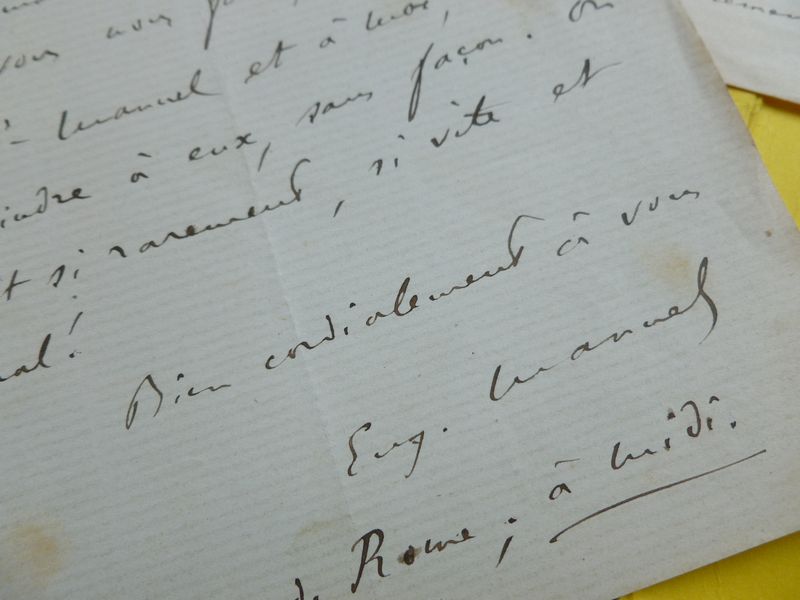 vous
Manuel et à moi,
indre à eux, sans façon. On
t si rarement, si vite et
al!
Bien cordialement à vous
Eug. Manuel
de Rome; à midi.